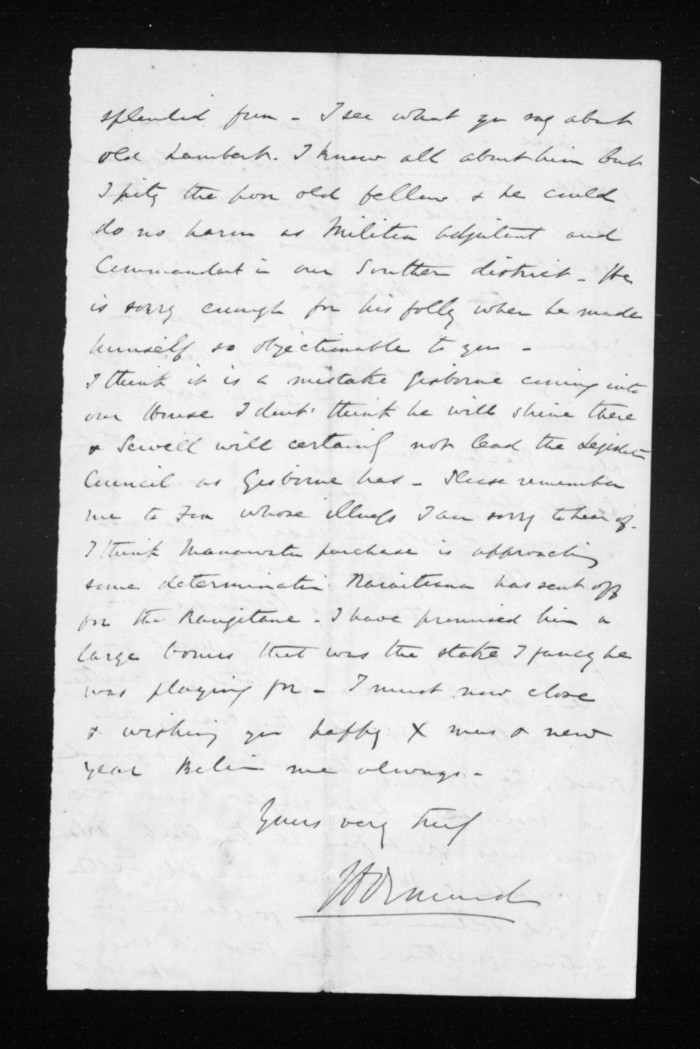 splendid fun - I see what you say about
old Lambert. I know all about him but
I pity the poor old fellow & he could
do no harm as Militia Adjutant and
Commandant in our Southern district - He
is sorry enough for his folly when he made
himself so objectionable to you -
I think it is a mistake Gisborne coming into
our House I dont think he will shine there
& Sewell will certainly not lead the Legislative
Council as Gisborne has - Please remember
me to Fox whose illness I am sorry to hear of -
I think Manawatu purchase is approaching
some determination has sent off
for the Rangitane - I have promised him a
large bonus that was the stake I fancy he
was playing for - I must now close
& wishing you happy X mas & new
year Believe me always -
Yours very truly
JD Ormond